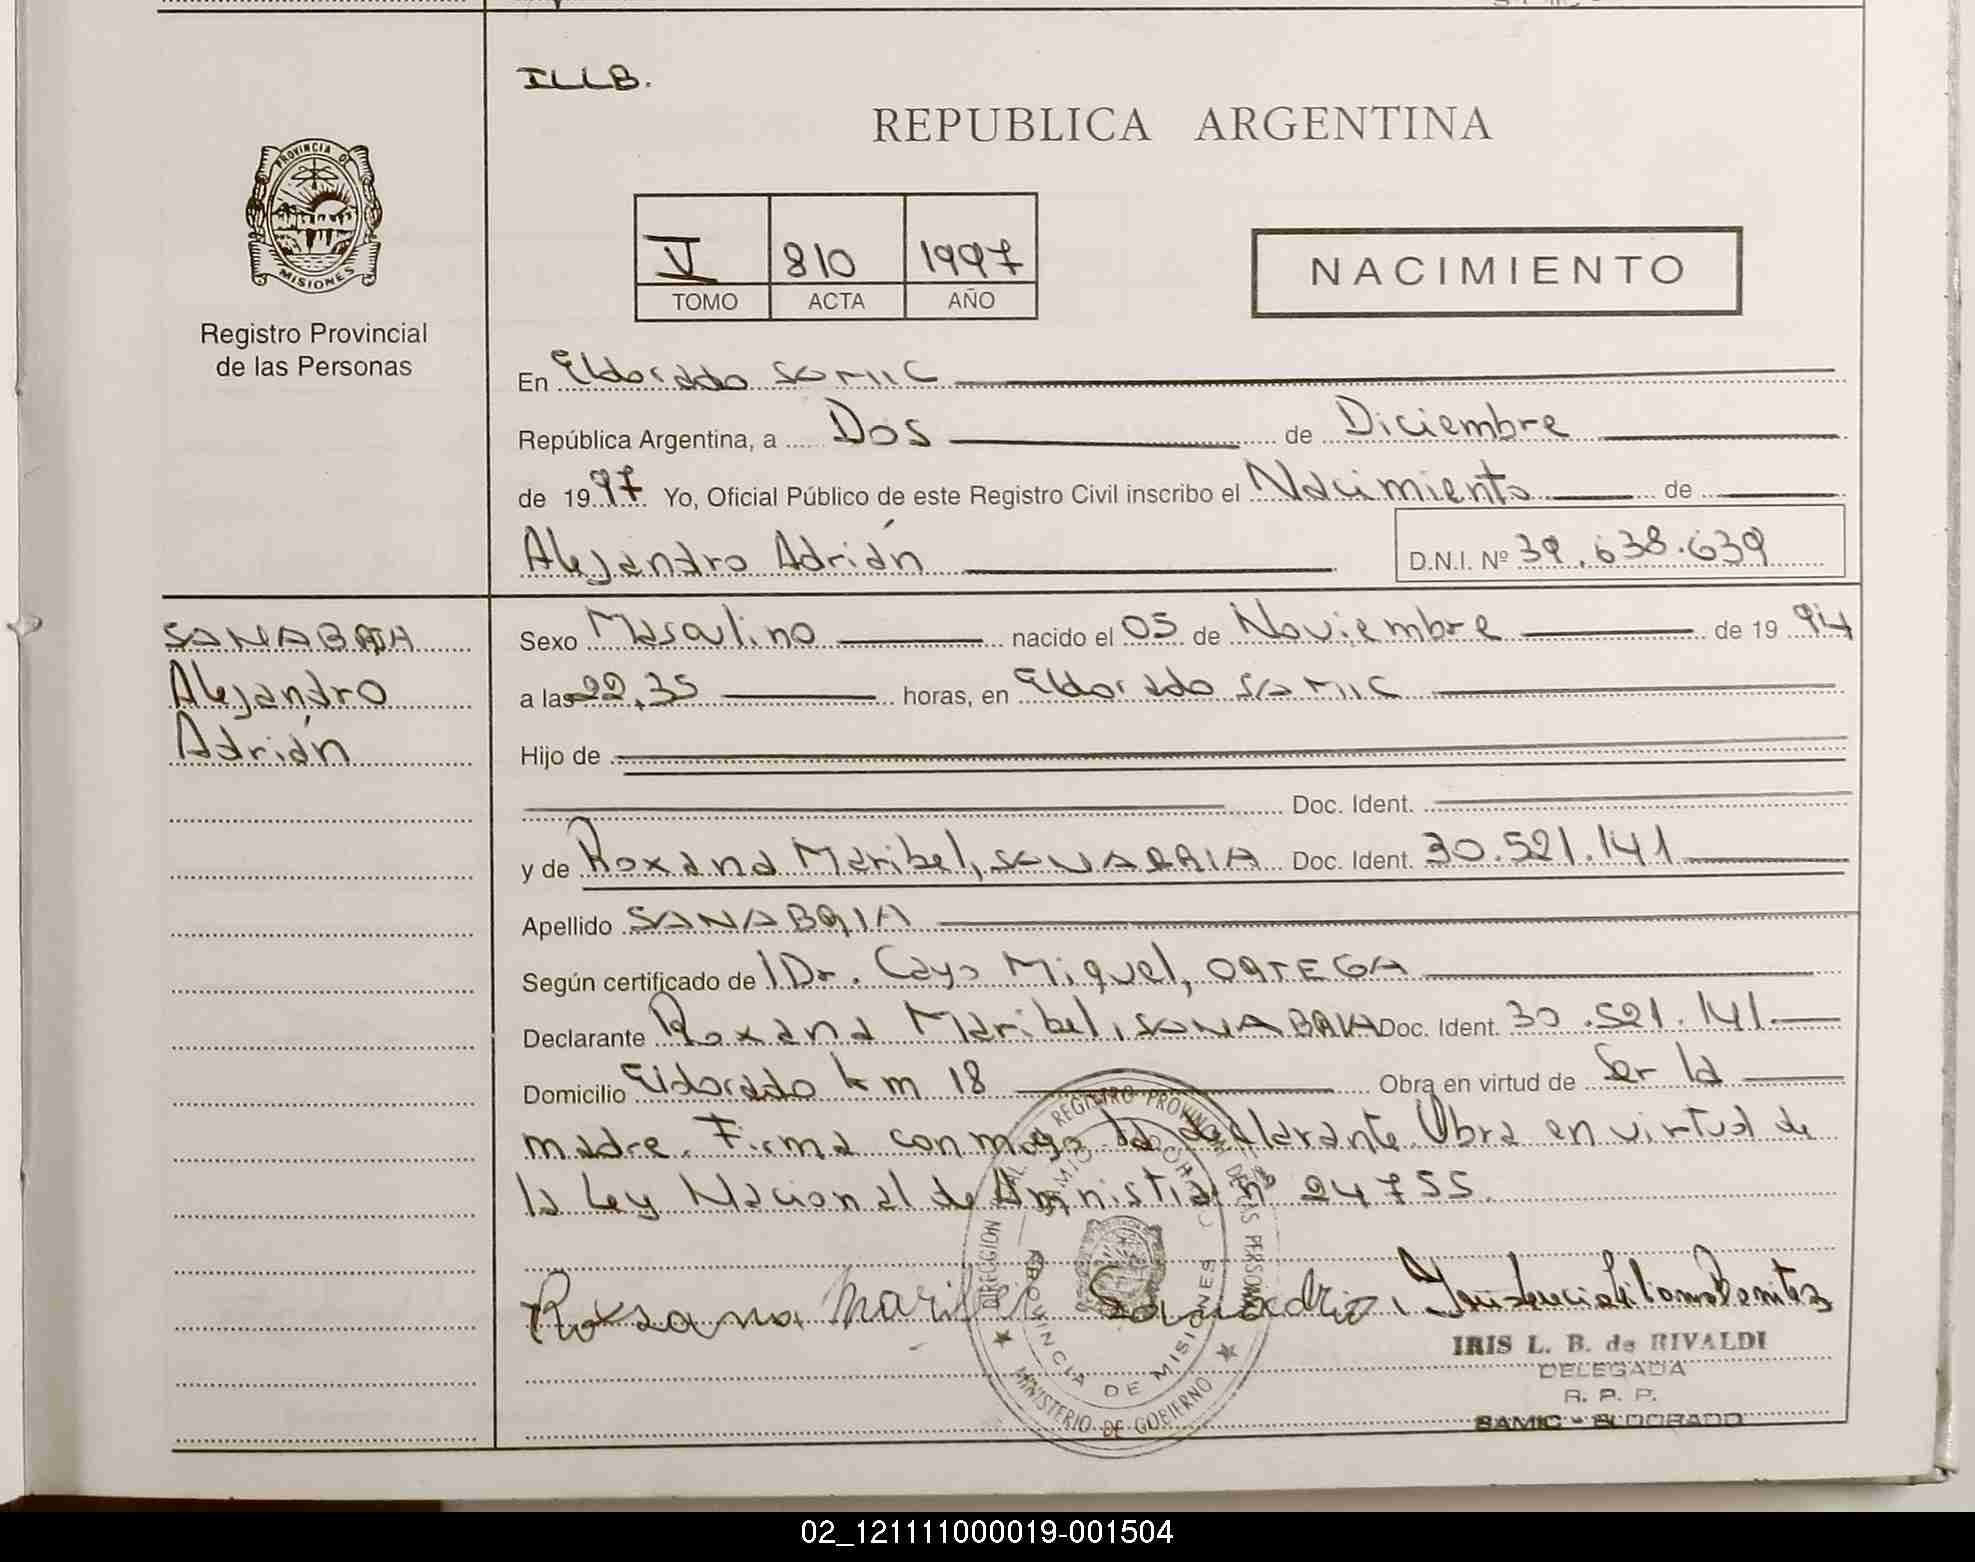 ILLB.
REPUBLICA ARGENTINA
PROVINCIA DE
MISIONES
Registro Provincial
de las Personas
V 810 1997
TOMO ACTA AÑO
NACIMIENTO
En Eldorado SAMIC
República Argentina, a Dos de Diciembre
de 1997 Yo, Oficial Público de este Registro Civil inscribo el Nacimiento de
Alejandro Adrián D.N.I. Nº 39.638.639
SANABRIA
Alejandro
Adrián
Sexo Masculino nacido el 05 de Noviembre de 1994
a las 22,35 horas, en Eldorado SAMIC
Hijo de
Doc. Ident.
y de Roxana Maribel, SANABRIA Doc. Ident. 30.521.141
Apellido SANABRIA
Según certificado de Dr. Cayo Miguel, ORTEGA
Declarante Roxana Maribel, SANABRIA Doc. Ident. 30.521.141.
Domicilio Eldorado km 18 Obra en virtud de Ser la
madre. Firma conmigo la declarante. Obra en virtud de
la Ley Nacional de Amnistia nº 24755.
Roxana Maribel Sanabria
IRIS L. B. de RIVALDI
DELEGADA
R. P. P.
SAMIC - ELDORADO
REGISTRO PROVINCIAL DE LAS PERSONAS
PROVINCIA DE MISIONES
MINISTERIO DE GOBIERNO
02_121111000019-001504